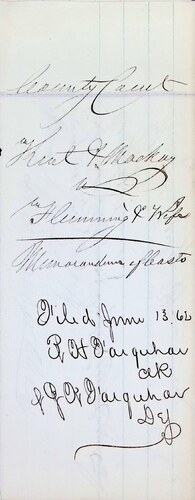 County Court
Kent & Mackay
vs
Flemming & Wife
Memorandum of Costs
Filed June 13. 62
R H Farquhar
Clk
J G Farquhar
Dy